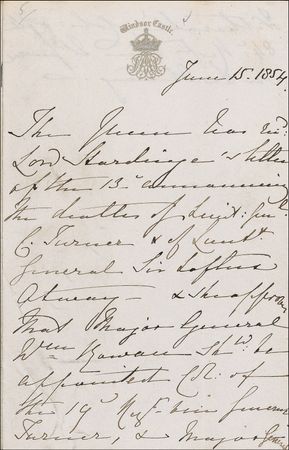 Windsor Castle
June 15. 1854.
The Queen has recd:
Lord Hardinge's letter
of the 13th announcing
the deaths of Lieut: Genl
C. Turner & of Lieut:
General Sir Loftus
Otway – & she approves
that Major General
Wm Rowan shd be
appointed Col: of
the 19th Regt vice General
Turner, & Major General